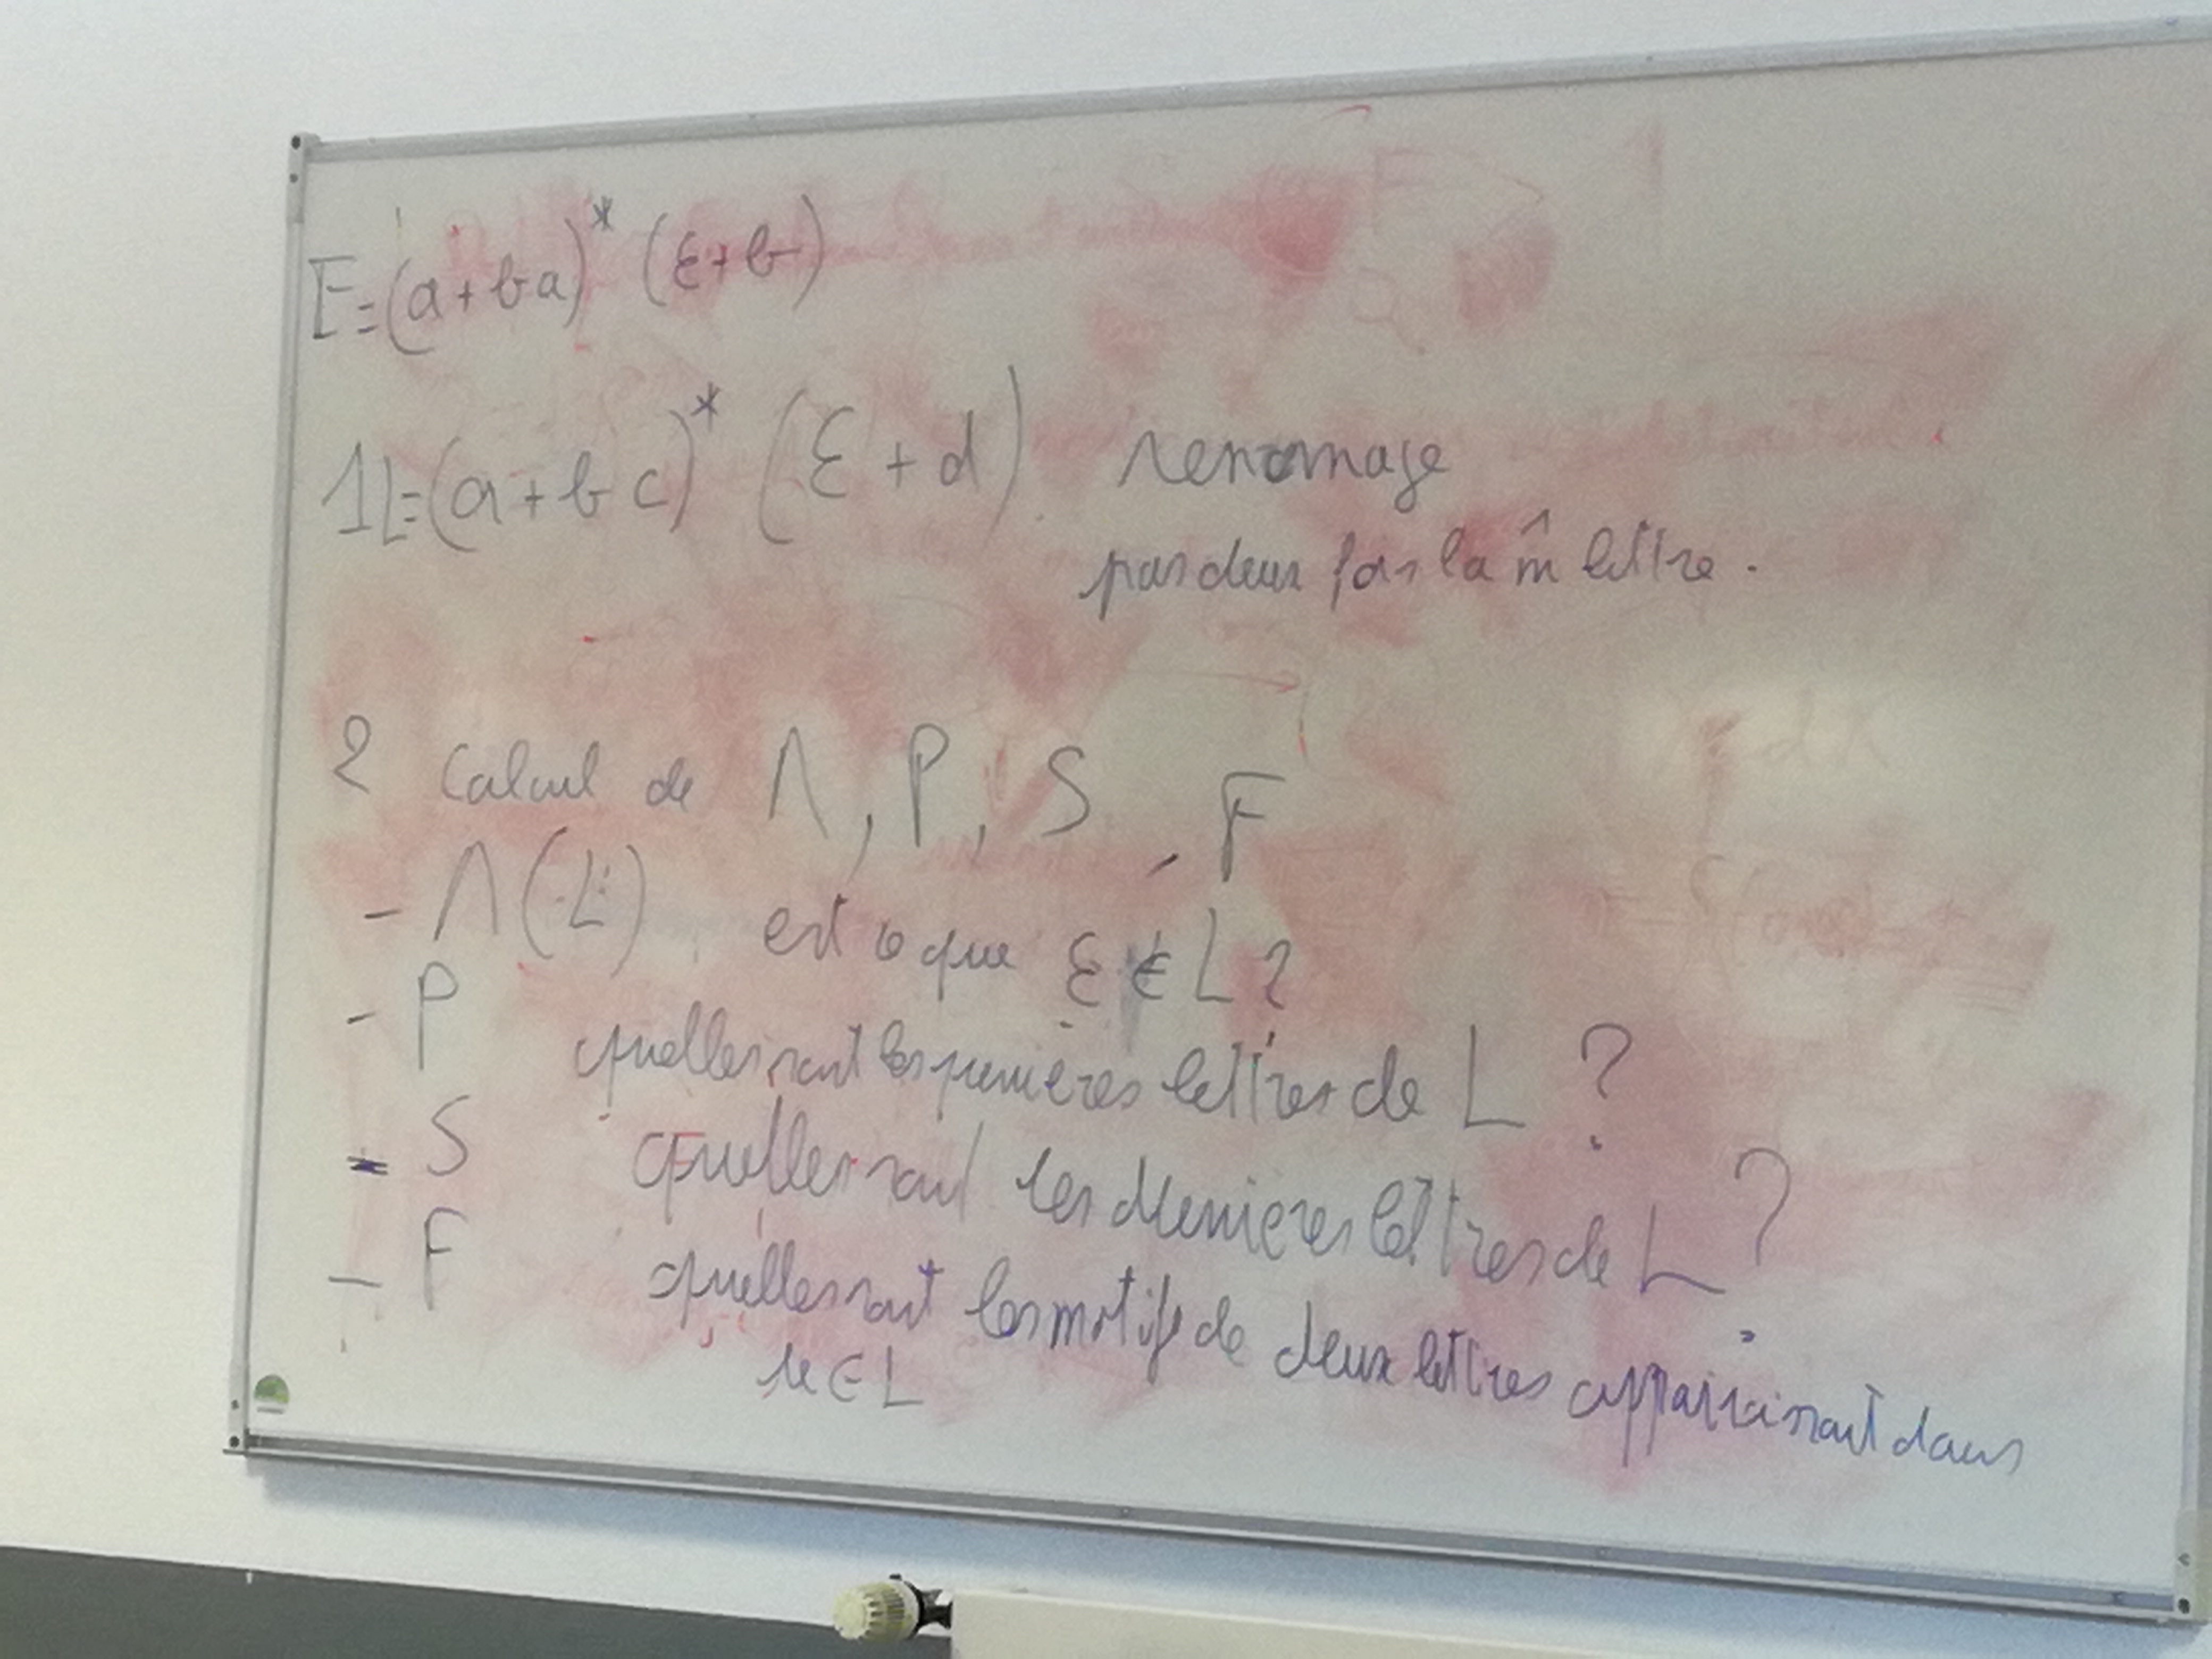 E=(a+ba)* (ε+b)
1 L=(a+bc)* (ε+d) renomage
pas deux fois la m̂ lettre.
2 Calcul de Λ, P, S, F
- Λ(L) est ce que ε ∈ L ?
- P quelles sont les premières lettres de L ?
- S quelles sont les dernières lettres de L ?
- F quelles sont les motifs de deux lettres appairaissant dans
u ∈ L